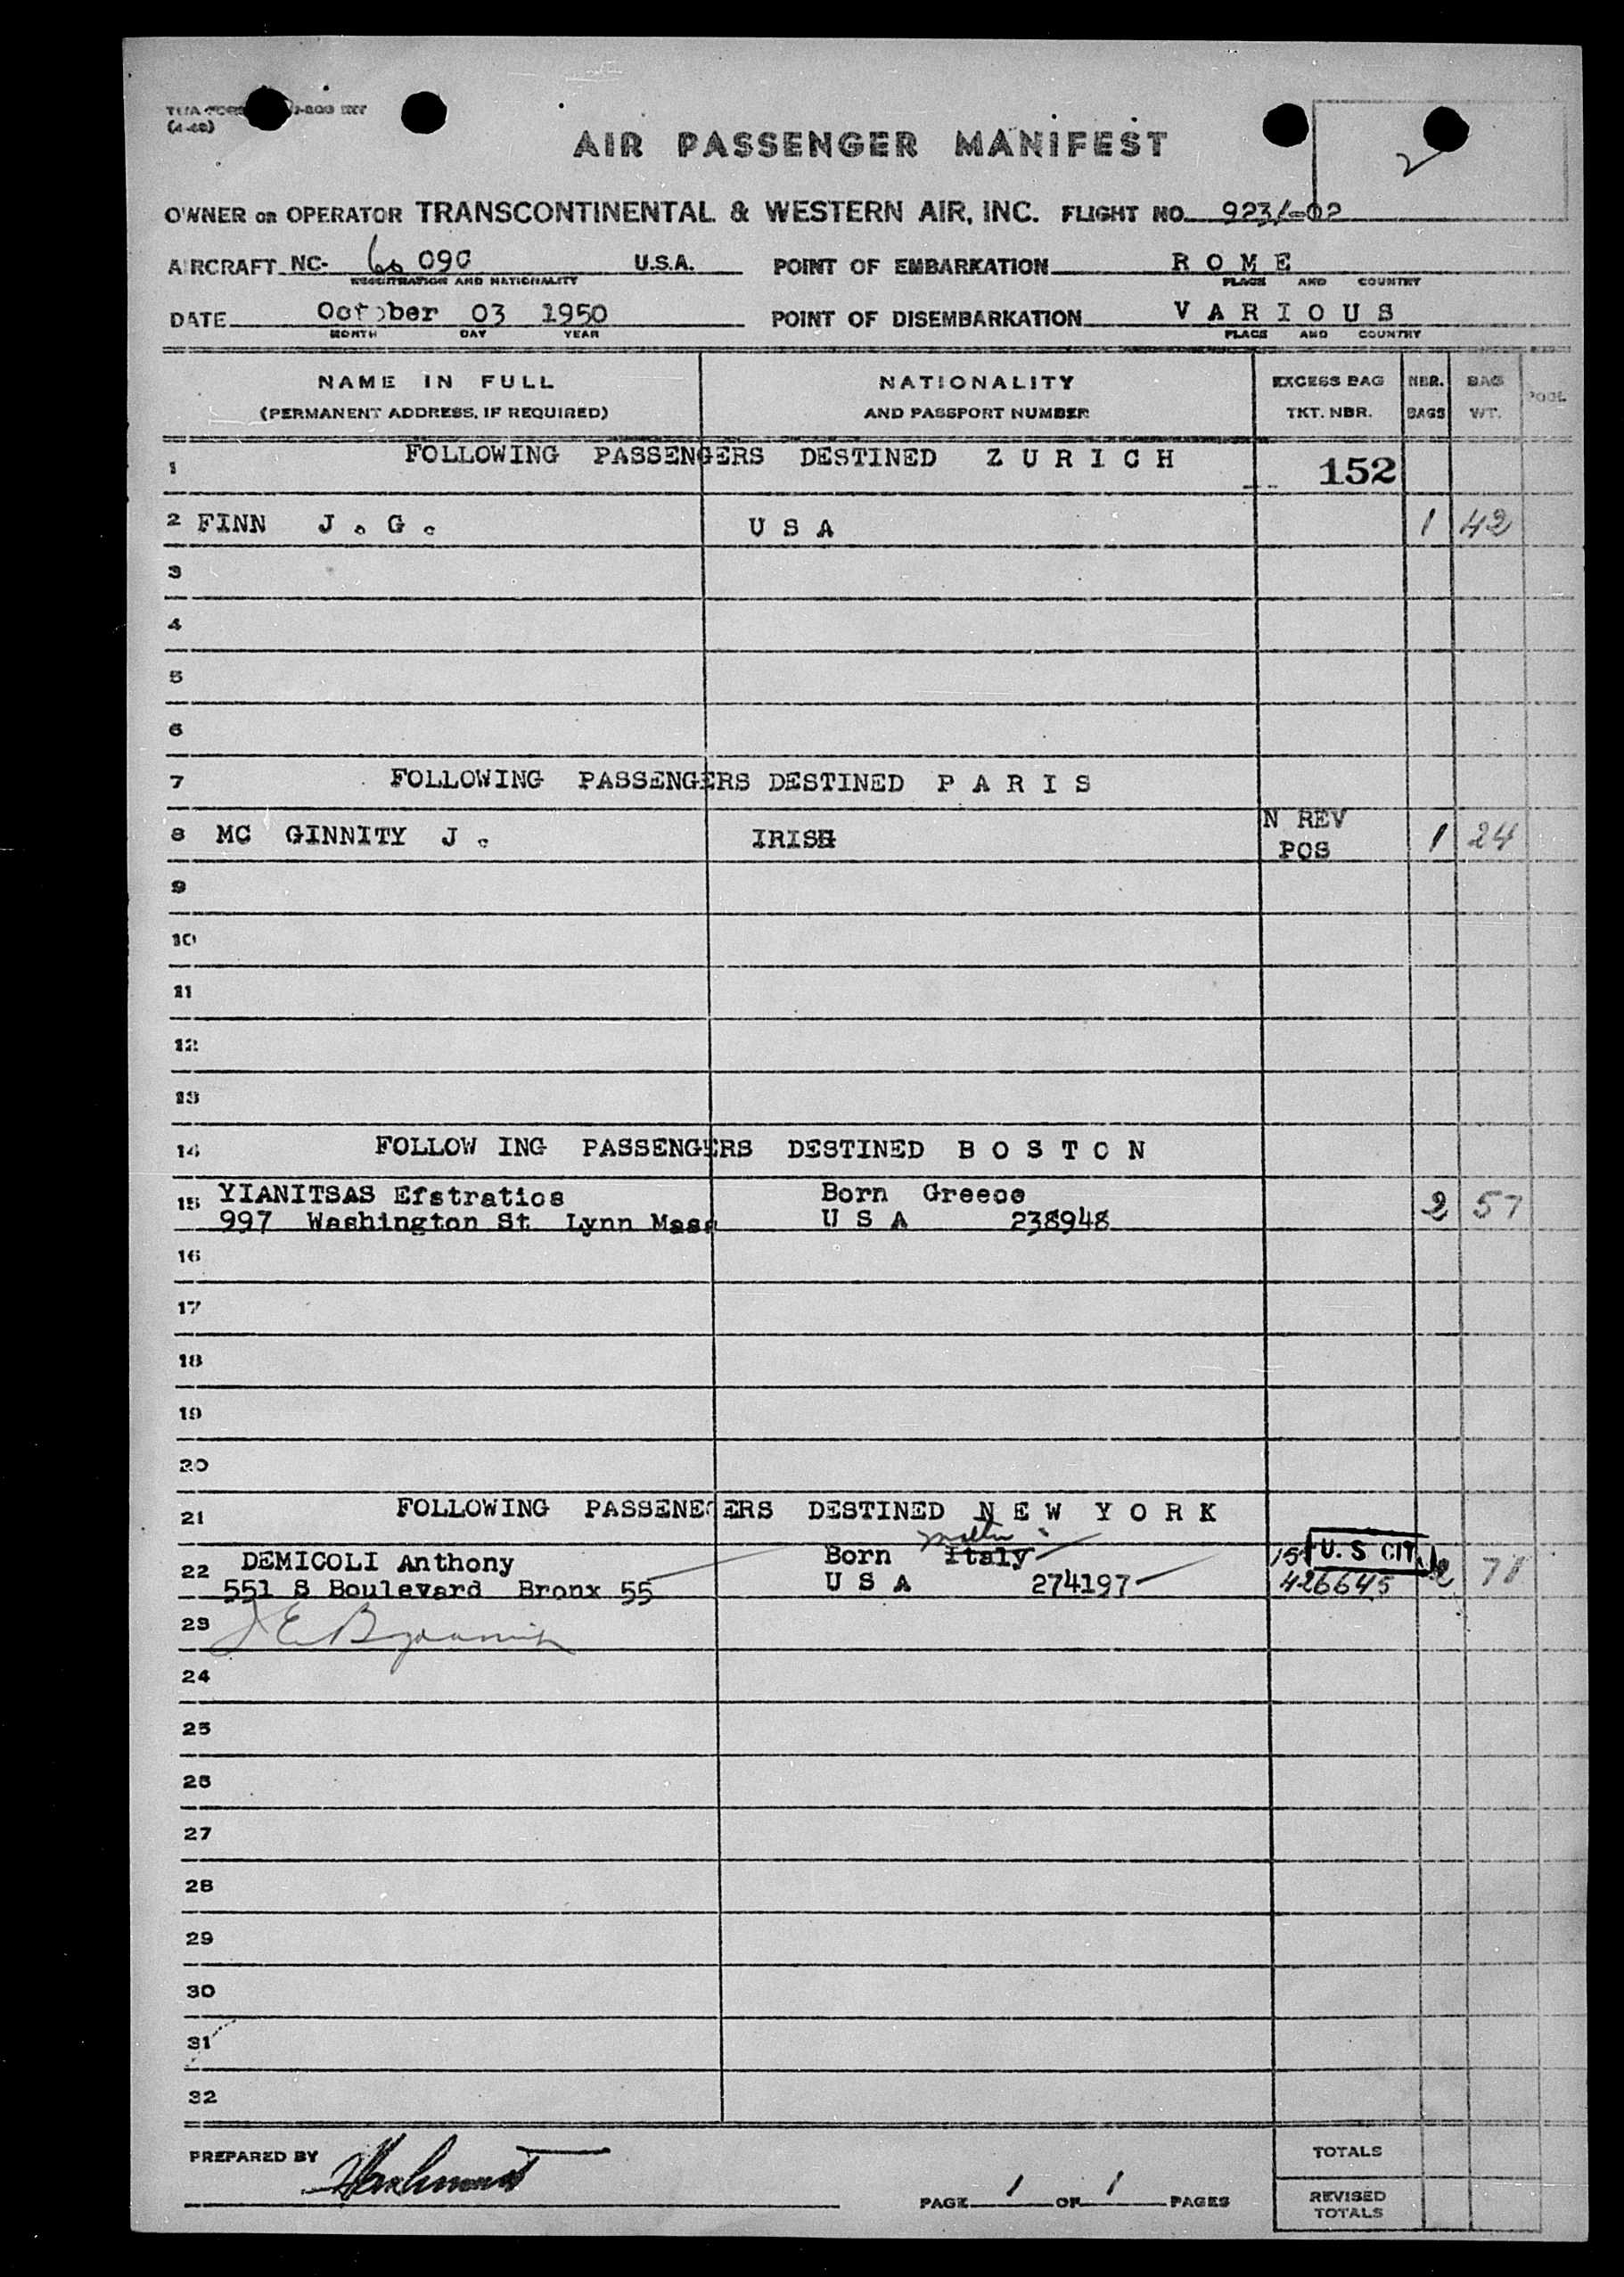 (4-48)
AIR PASSENGER MANIFEST
OWNER OR OPERATOR TRANSCONTINENTAL & WESTERN AIR, INC. FLIGHT NO. 923/-02
AIRCRAFT NC- 090 U.S.A. POINT OF EMBARKATION ROME
REGISTRATION AND NATIONALITY PLACE AND COUNTRY
DATE October 03 1950 POINT OF DISEMBARKATION VARIOUS
MONTH DAY YEAR PLACE AND COUNTRY
NAME IN FULL NATIONALITY EXCESS BAG NBR. BAG POOL
(PERMANENT ADDRESS, IF REQUIRED) AND PASSPORT NUMBER TKT. NBR. BAGS WT.
1 FOLLOWING PASSENGERS DESTINED ZURICH 152
2 FINN J.G. USA 1 42
3
4
5
6
7 FOLLOWING PASSENGERS DESTINED PARIS
8 MC GINNITY J. IRISH N REV POS 1 24
9
10
11
12
13
14 FOLLOW ING PASSENGERS DESTINED BOSTON
15 YIANITSAS Efstratios Born Greece 2 57
997 Washington St Lynn Mass USA 238948
16
17
18
19
20
21 FOLLOWING PASSENEGERS DESTINED NEW YORK
22 DEMICOLI Anthony Born Italy U.S CIT. 2
551 S Boulevard Bronx 55 USA 274197 426645
23
24
25
26
27
28
29
30
31
32
PREPARED BY TOTALS
PAGE 1 OF 1 PAGES REVISED TOTALS